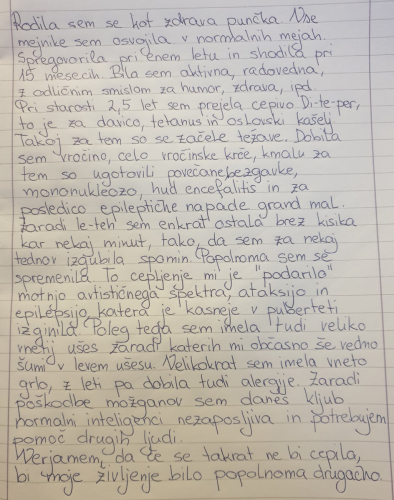 Rodila sem se kot zdrava punčka. Vse
mejnike sem osvojila v normalnih mejah.
Spregovorila pri enem letu in shodila pri
15 mesecih. Bila sem aktivna, radovedna,
z odličnim smislom za humor, zdrava, ipd.
Pri starosti 2,5 let sem prejela cepivo Di-te-per,
to je za davico, tetanus in oslovski kašelj.
Takoj za tem so se začele težave. Dobila
sem vročino, celo vročinske krče, kmalu za
tem so ugotovili povečane bezgavke,
mononukleozo, hud encefalitis in za
posledico epileptične napade grand mal.
Zaradi le-teh sem enkrat ostala brez kisika
kar nekaj minut, tako, da sem za nekaj
tednov izgubila spomin. Popolnoma sem se
spremenila. To cepljenje mi je "podarilo"
motnjo avtističnega spektra, ataksijo in
epilepsijo, katera je kasneje v puberteti
izginila. Poleg tega sem imela tudi veliko
vnetij ušes zaradi katerih mi občasno še vedno
šumi v levem ušesu. Velikokrat sem imela vneto
grlo, z leti pa dobila tudi alergije. Zaradi
poškodbe možganov sem danes kljub
normalni inteligenci nezaposljiva in potrebujem
pomoč drugih ljudi.
Verjamem, da če se takrat ne bi cepila,
bi moje življenje bilo popolnoma drugačno.